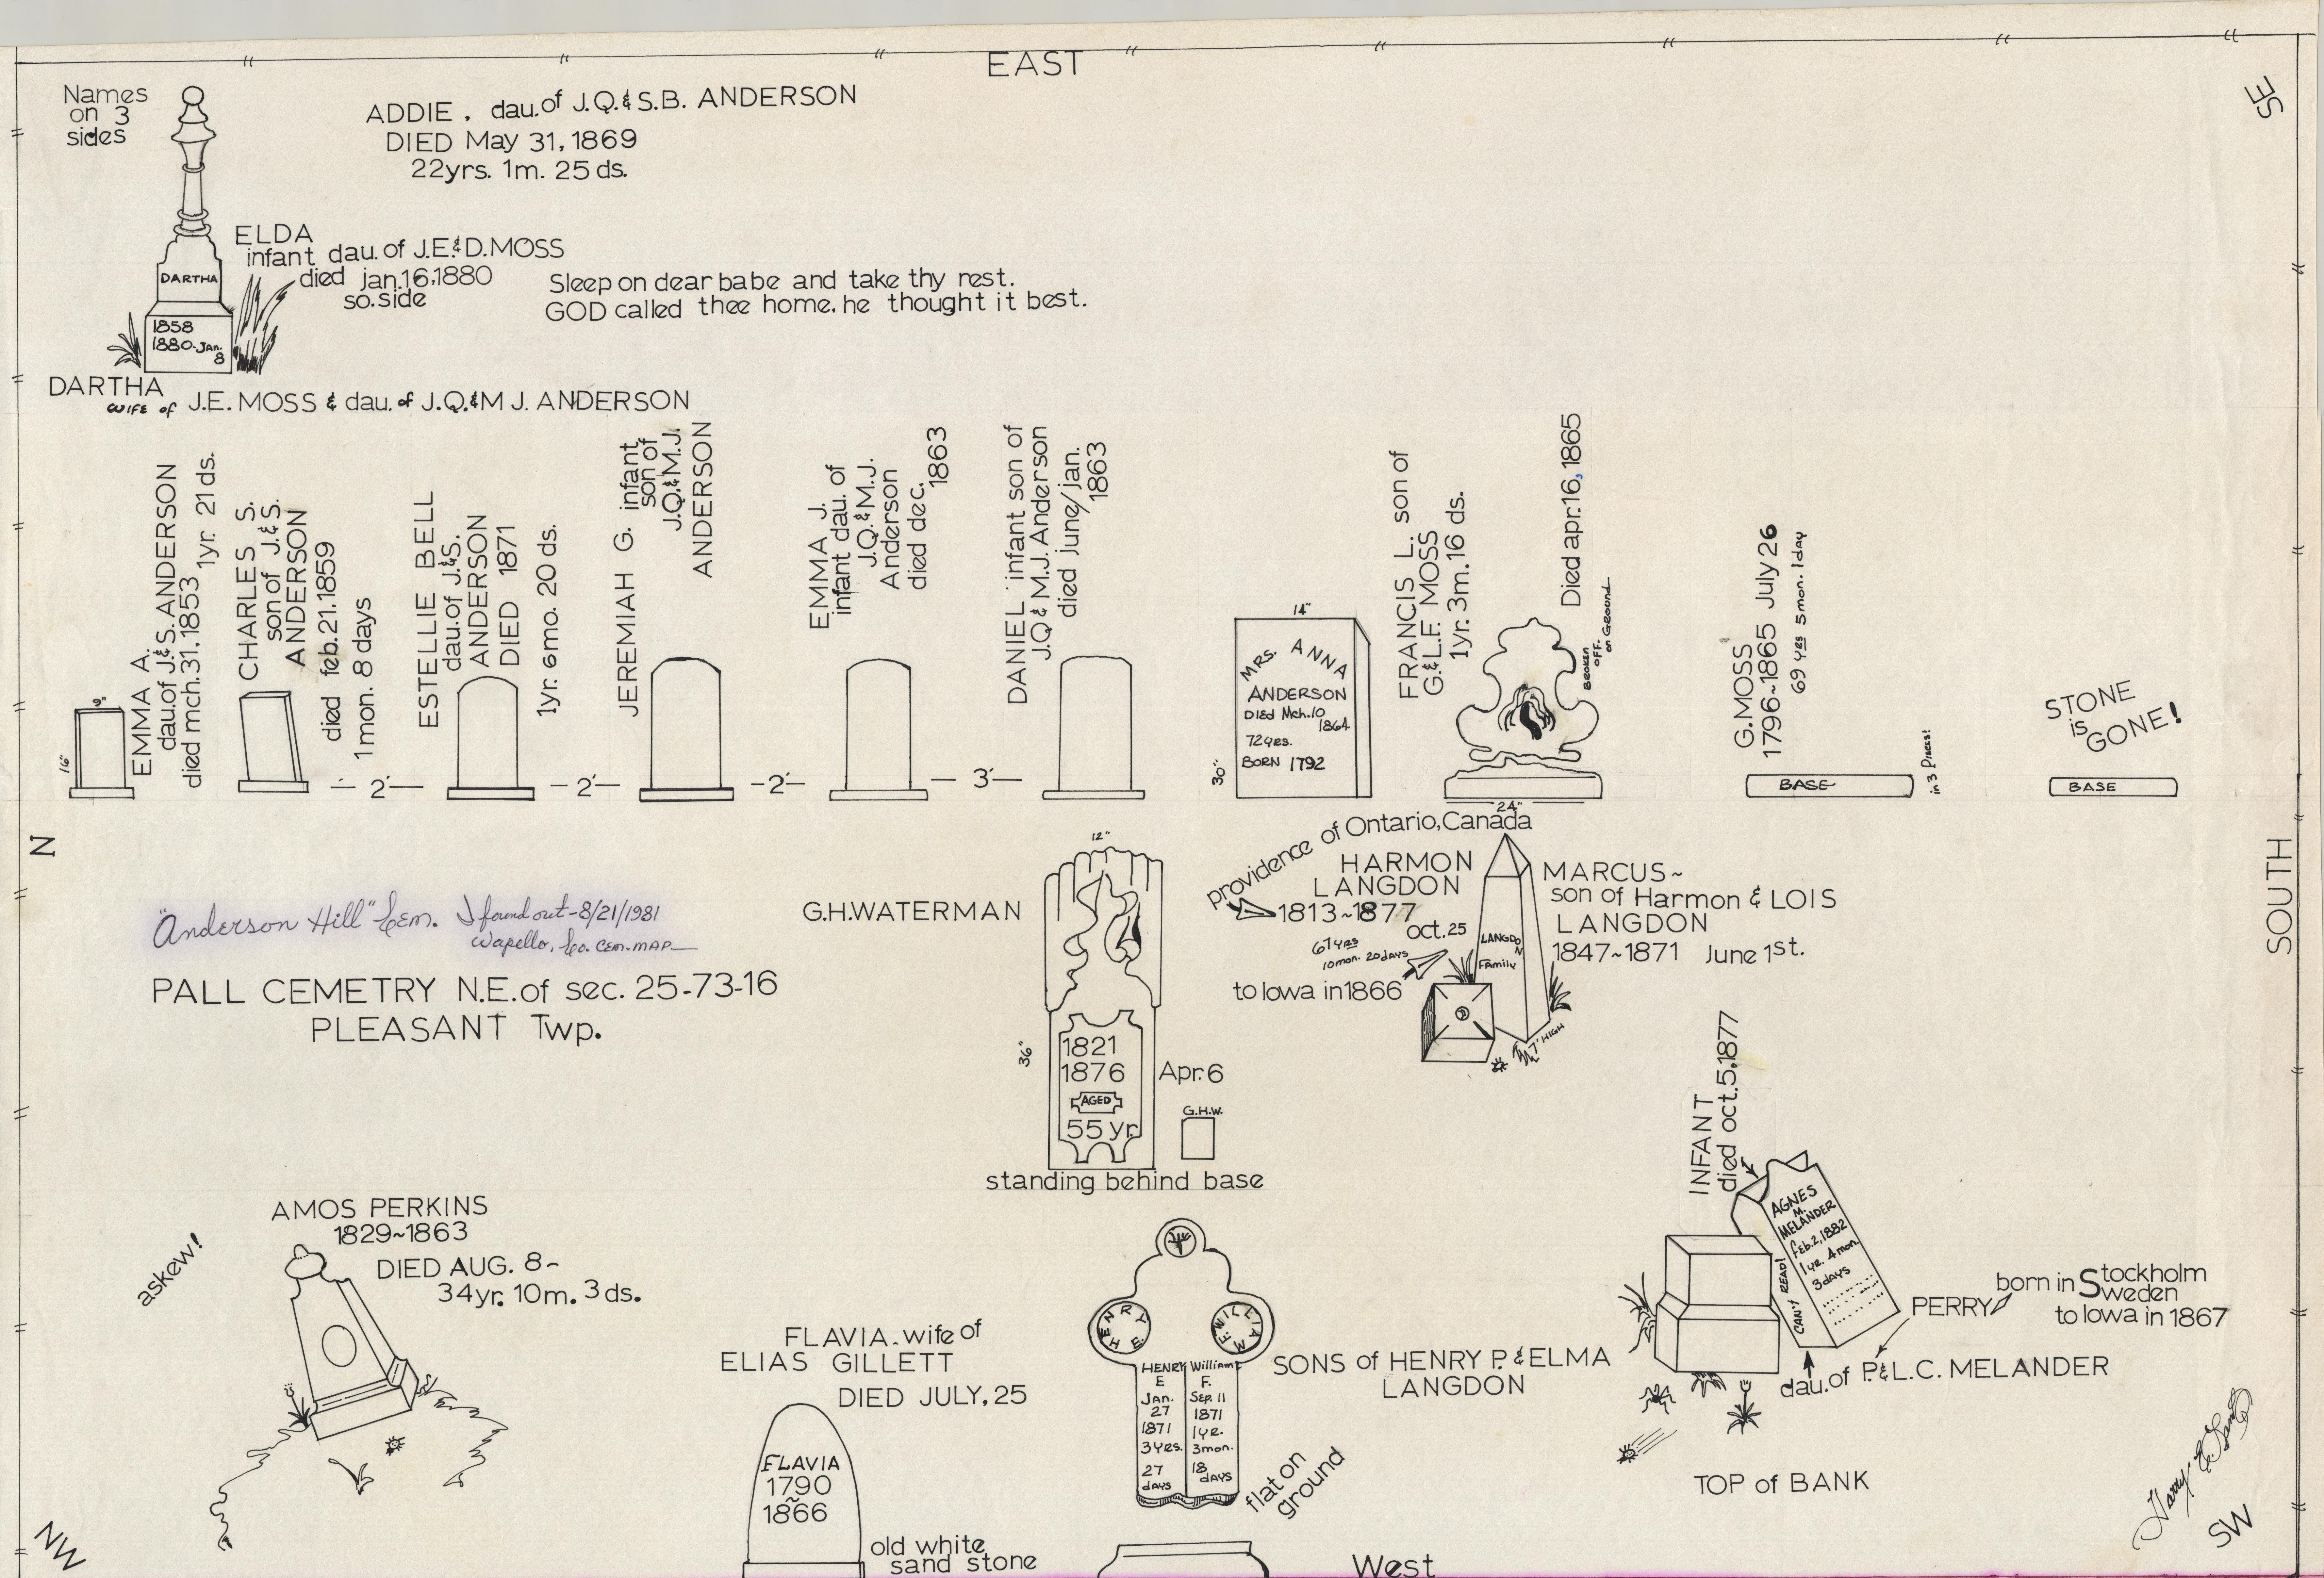 EAST
SE
Names
on 3
sides
ADDIE . dau. of J.Q. & S.B. ANDERSON
DIED May 31, 1869
22yrs. 1m. 25 ds.
ELDA
infant dau. of J.E. & D. MOSS
died jan. 16, 1880
so. side
Sleep on dear babe and take thy rest.
GOD called thee home. he thought it best.
DARTHA
1858
1880-Jan.
8
DARTHA
wife of J.E. MOSS & dau. of J.Q. & M J. ANDERSON
9"
16"
EMMA A.
dau. of J. & S. ANDERSON
died mch. 31. 1853
1yr. 21 ds.
CHARLES S.
son of J. & S.
ANDERSON
died feb. 21. 1859
1 mon. 8 days
2'
ESTELLIE BELL
dau. of J. & S.
ANDERSON
DIED 1871
1yr. 6mo. 20 ds.
2'
JEREMIAH G. infant
son of
J.Q. & M.J.
ANDERSON
2'
EMMA J.
infant dau. of
J.Q. & M.J.
Anderson
died dec.
1863
3'
DANIEL infant son of
J.Q & M.J. Anderson
died june/jan.
1863
14"
30"
MRS. ANNA
ANDERSON
DIED Mch. 10
1864
72 yrs.
BORN 1792
FRANCIS L. son of
G. & L.F. MOSS
1yr. 3m. 16 ds.
Died apr. 16, 1865
BROKEN
OFF.
on GROUND
24"
G. MOSS
1796~1865 July 26
69 yrs 5 mon. 1 day
BASE
in 3 Pieces!
STONE
is
GONE!
BASE
N
SOUTH
"Anderson Hill" Cem. I found out - 8/21/1981
Wapello, Co. CEM. MAP
PALL CEMETRY N.E. of sec. 25-73-16
PLEASANT Twp.
G.H. WATERMAN
12"
36"
1821
1876
AGED
55 yr.
Apr. 6
G.H.W.
standing behind base
providence of Ontario, Canada
HARMON
LANGDON
1813~1877
oct. 25
67 yrs
10 mon. 20 days
to Iowa in 1866
LANGDO
N
Family
7' HIGH
MARCUS~
son of Harmon & LOIS
LANGDON
1847~1871 June 1st.
askew!
AMOS PERKINS
1829~1863
DIED AUG. 8~
34yr. 10m. 3 ds.
FLAVIA. wife of
ELIAS GILLETT
DIED JULY, 25
FLAVIA
1790
~
1866
old white
sand stone
HENRY E.
WILLIAM F.
HENRY William
E F.
Jan. Sep. 11
27 1871
1871 1 yr.
3 yrs. 3 mon.
27 18
days days
SONS of HENRY P. & ELMA
LANGDON
flat on
ground
INFANT
died oct. 5, 1877
AGNES
M.
MELANDER
Feb. 2, 1882
1 yr. 4 mon.
3 days
CAN'T READ!
PERRY
born in Stockholm
Sweden
to Iowa in 1867
dau. of P. & L.C. MELANDER
TOP of BANK
NW
West
SW